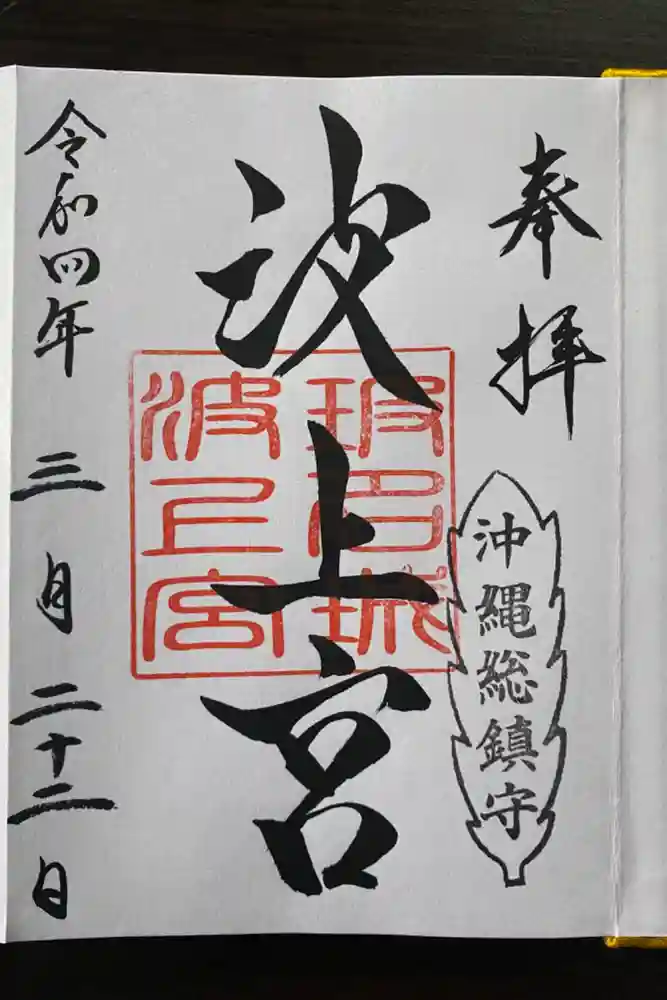 奉拝
沖縄総鎮守
波上宮
玻名城
波上宮
令和四年三月二十二日